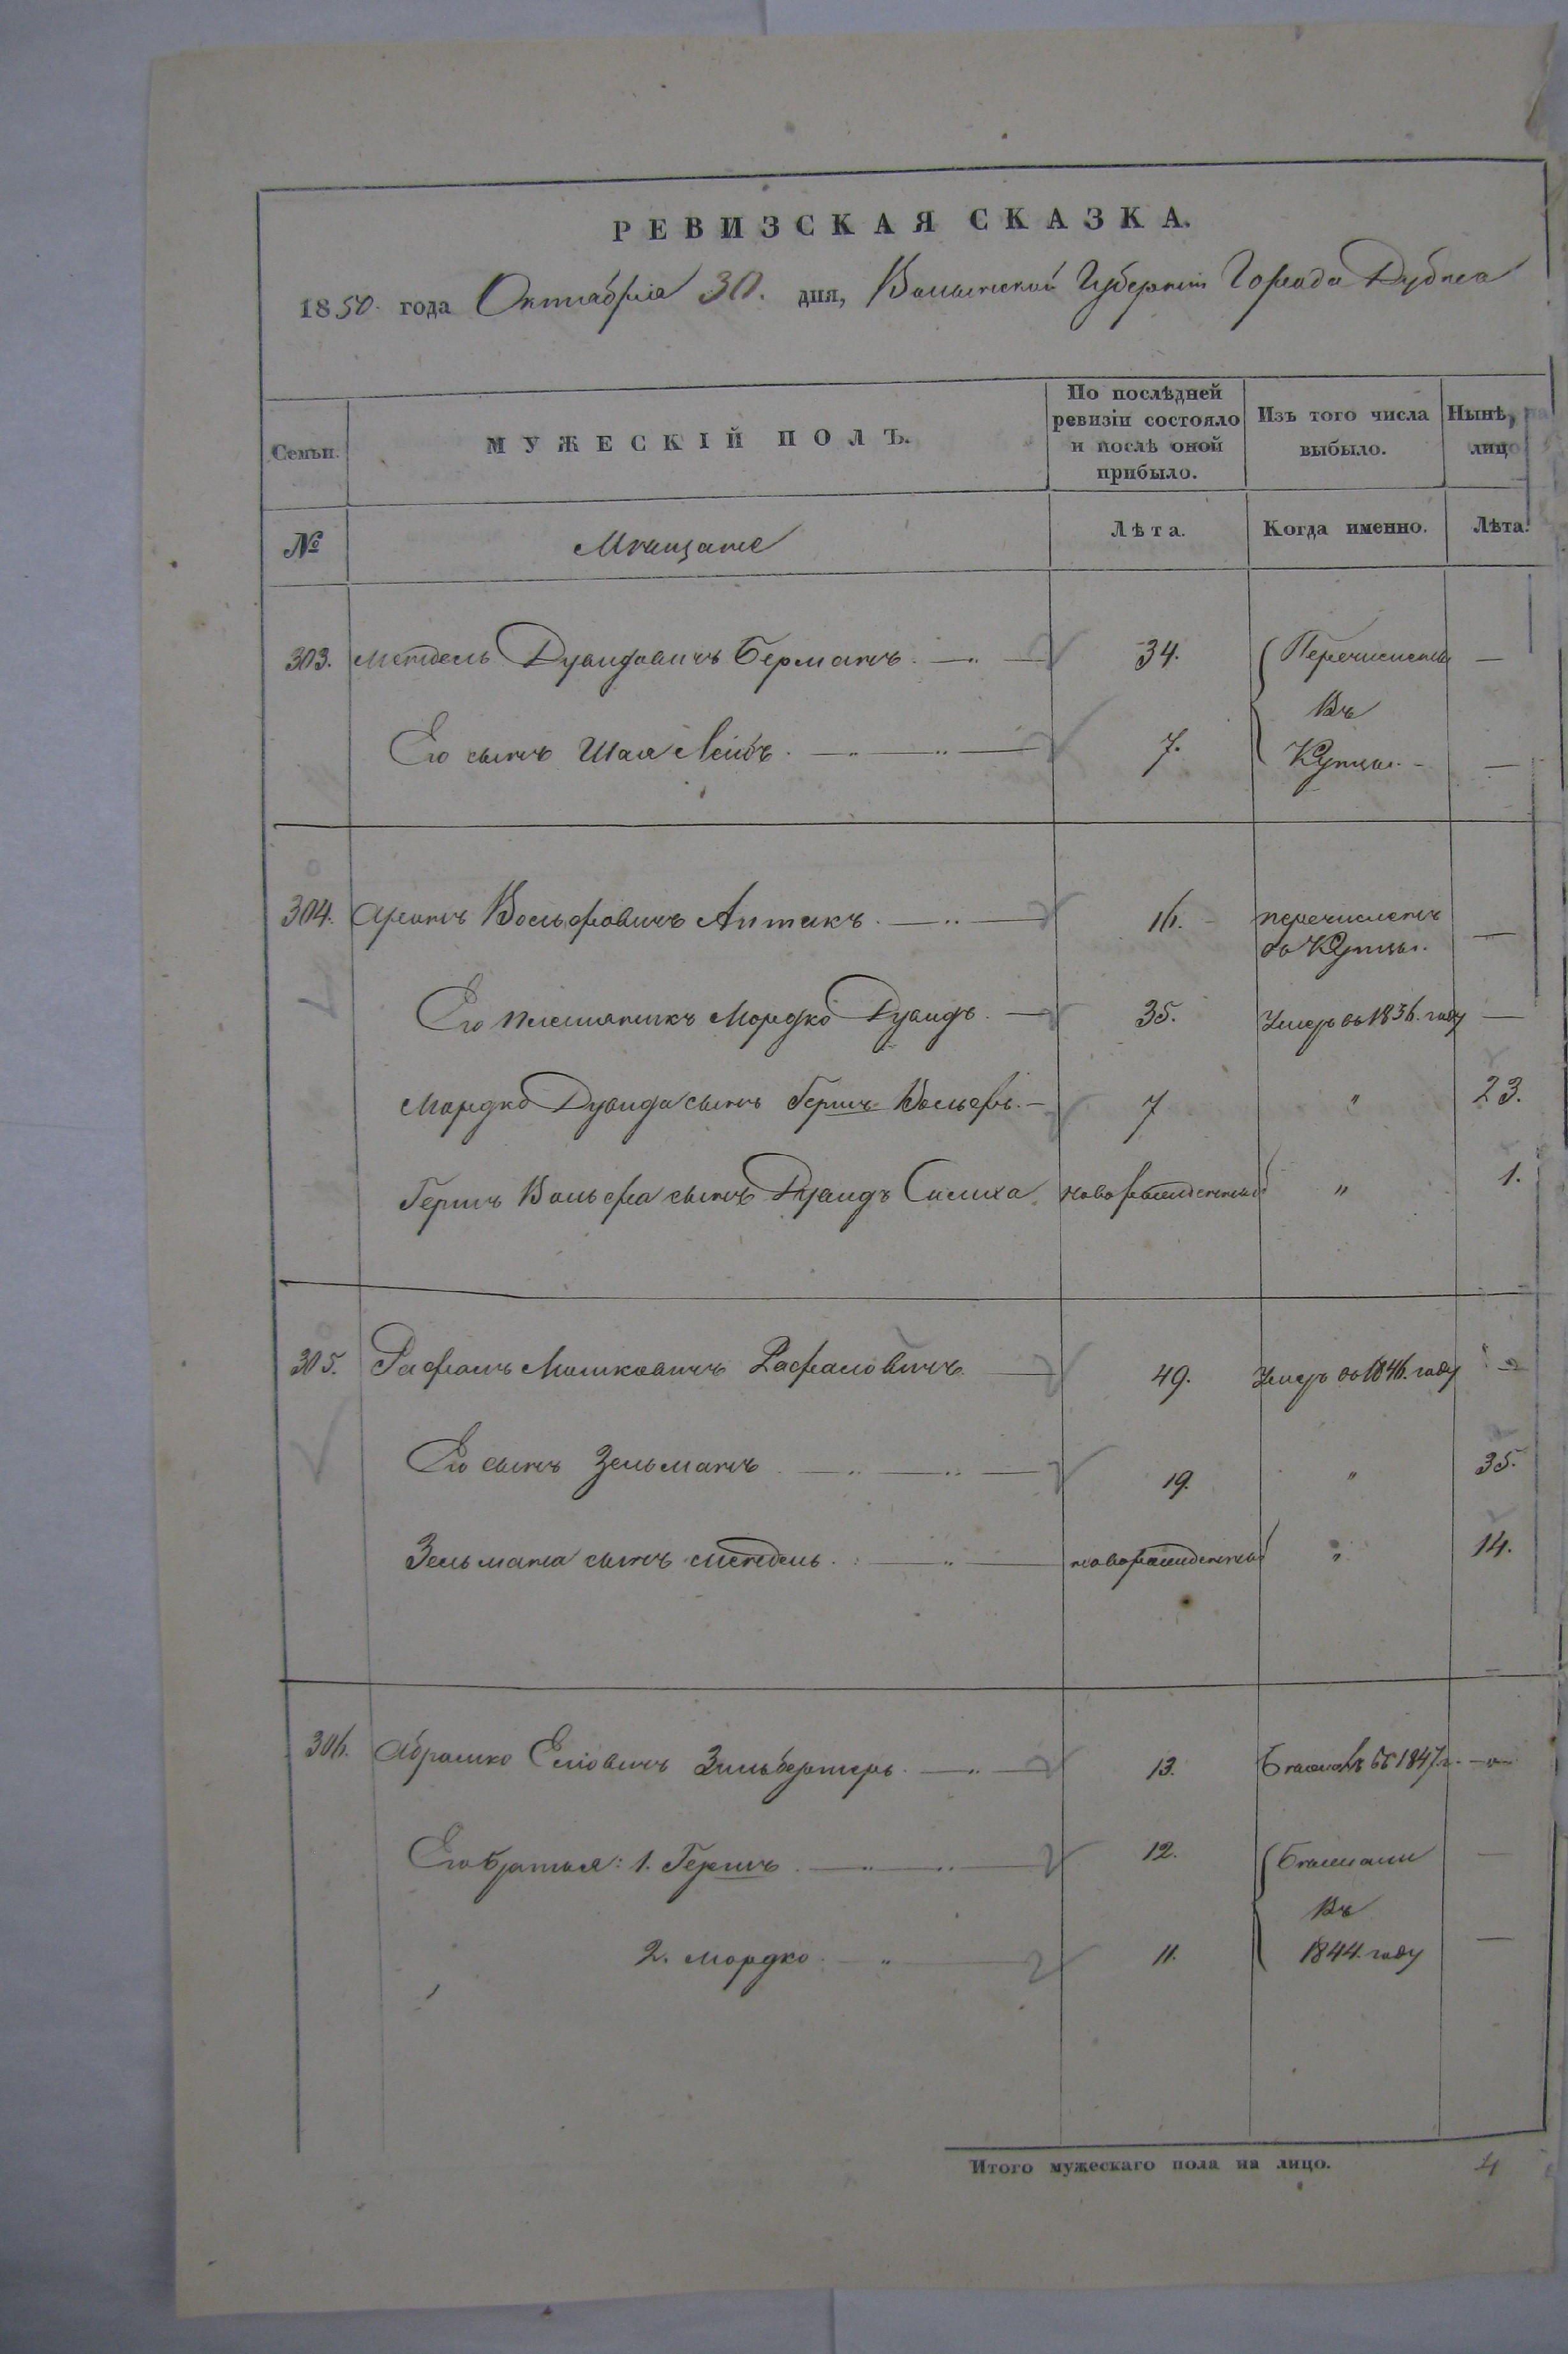 РЕВИЗСКАЯ СКАЗКА.
1850. года Октября 30. дня, Волынской Губернии Города Дубна
Семьи. МУЖЕСКІЙ ПОЛЪ. По послѣдней ревизіи состояло и послѣ оной прибыло. Изъ того числа выбыло. Нынѣ на лицо
№ Мещане Лѣта. Когда именно. Лѣта.
303. Мендель Дувидовичъ Берманъ 34. Перечислены —
Его сынъ Шая Лейбъ 7. Въ Купцы. —
304. Аронъ Вольфовичъ Аптекъ 16. перечисленъ —
въ Купцы.
Его племянникъ Мордко Дувидъ 35. Умеръ въ 1836. году —
Мордко Дувида сынъ Гершъ Вольфъ 7 " 23.
Гершъ Вольфа сынъ Дувидъ Симха новорожденный " 1.
305. Рафаль Мошковичъ Рафаловичъ 49. Умеръ въ 1846. году —
Его сынъ Зельманъ 19. " 35.
Зельмана сынъ Мендель новорожденный " 14.
306. Абрамко Еліовичъ Зильбертеръ 13. Бежалъ въ 1847. г. —
Его братья: 1. Гершъ 12. Бежали —
Въ
2. Мордко 11. 1844. году —
Итого мужескаго пола на лицо. 4